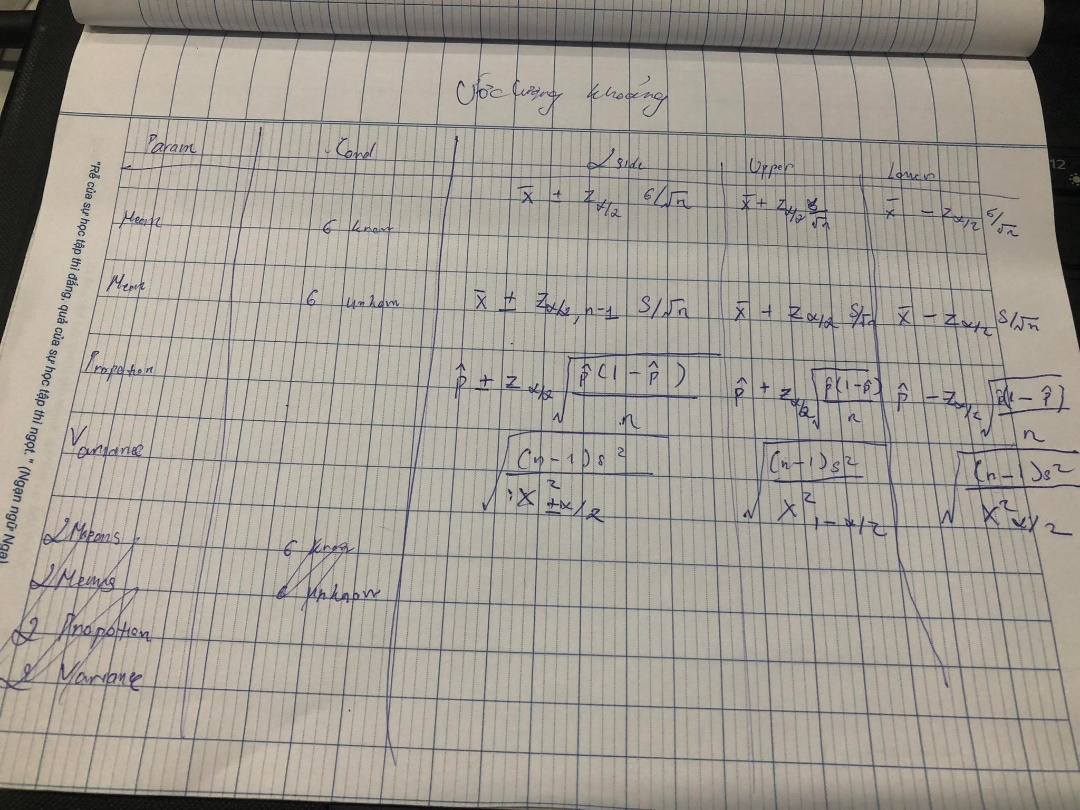 Ước lượng khoảng
Param Cond 2 side Upper Lower
Mean 6 know x̄ ± z α/2 6/√n x̄ + z α/2 6/√n x̄ - z α/2 6/√n
Mean 6 unknow x̄ ± z α/2, n-1 S/√n x̄ + z α/2 S/√n x̄ - z α/2 S/√n
Propotion p̂ ± z α/2 √(p̂(1 - p̂)/n) p̂ + z α/2 √(p̂(1-p̂)/n) p̂ - z α/2 √(p̂(1 - p̂)/n)
Variance √((n-1)s²/X² ±α/2) √((n-1)s²/X² 1-α/2) √((n-1)s²/X² α/2)
2 Means 6 know
2 Means 6 unknow
2 Propotion
2 Variance
"Rễ của sự học tập thì đắng, quả của sự học tập thì ngọt." (Ngạn ngữ Nga)
12